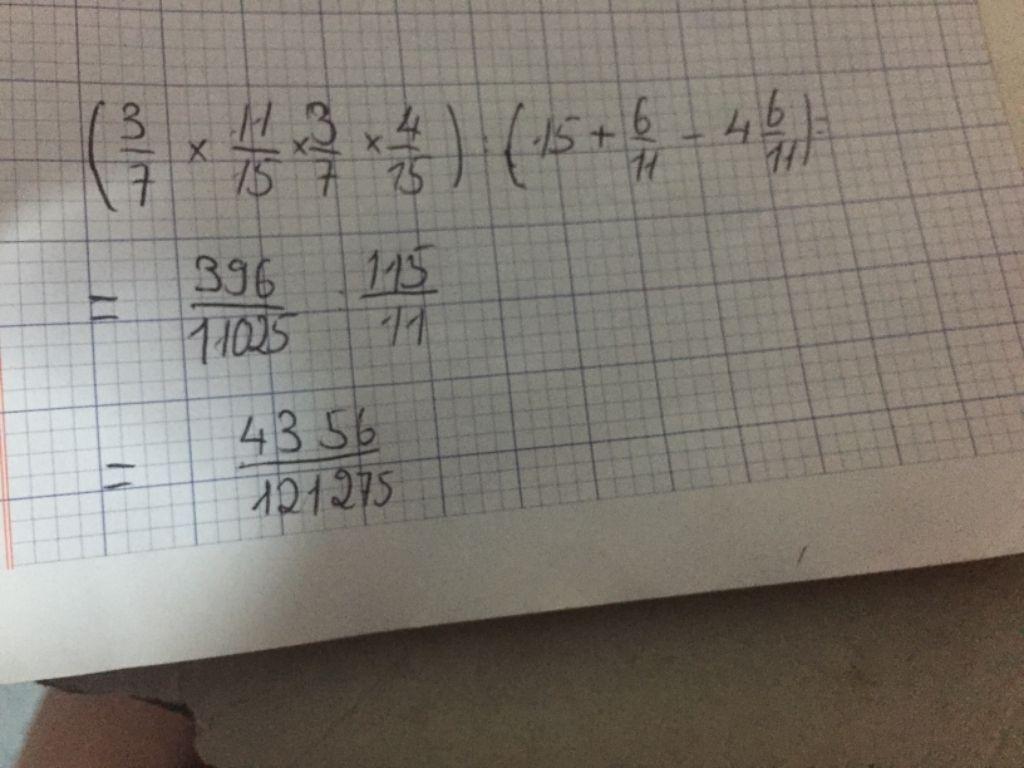 (3/7 × 11/15 × 3/7 × 4/15) : (15 + 6/11 - 4 6/11) =
= 396/11025 . 115/11
= 4356/121275